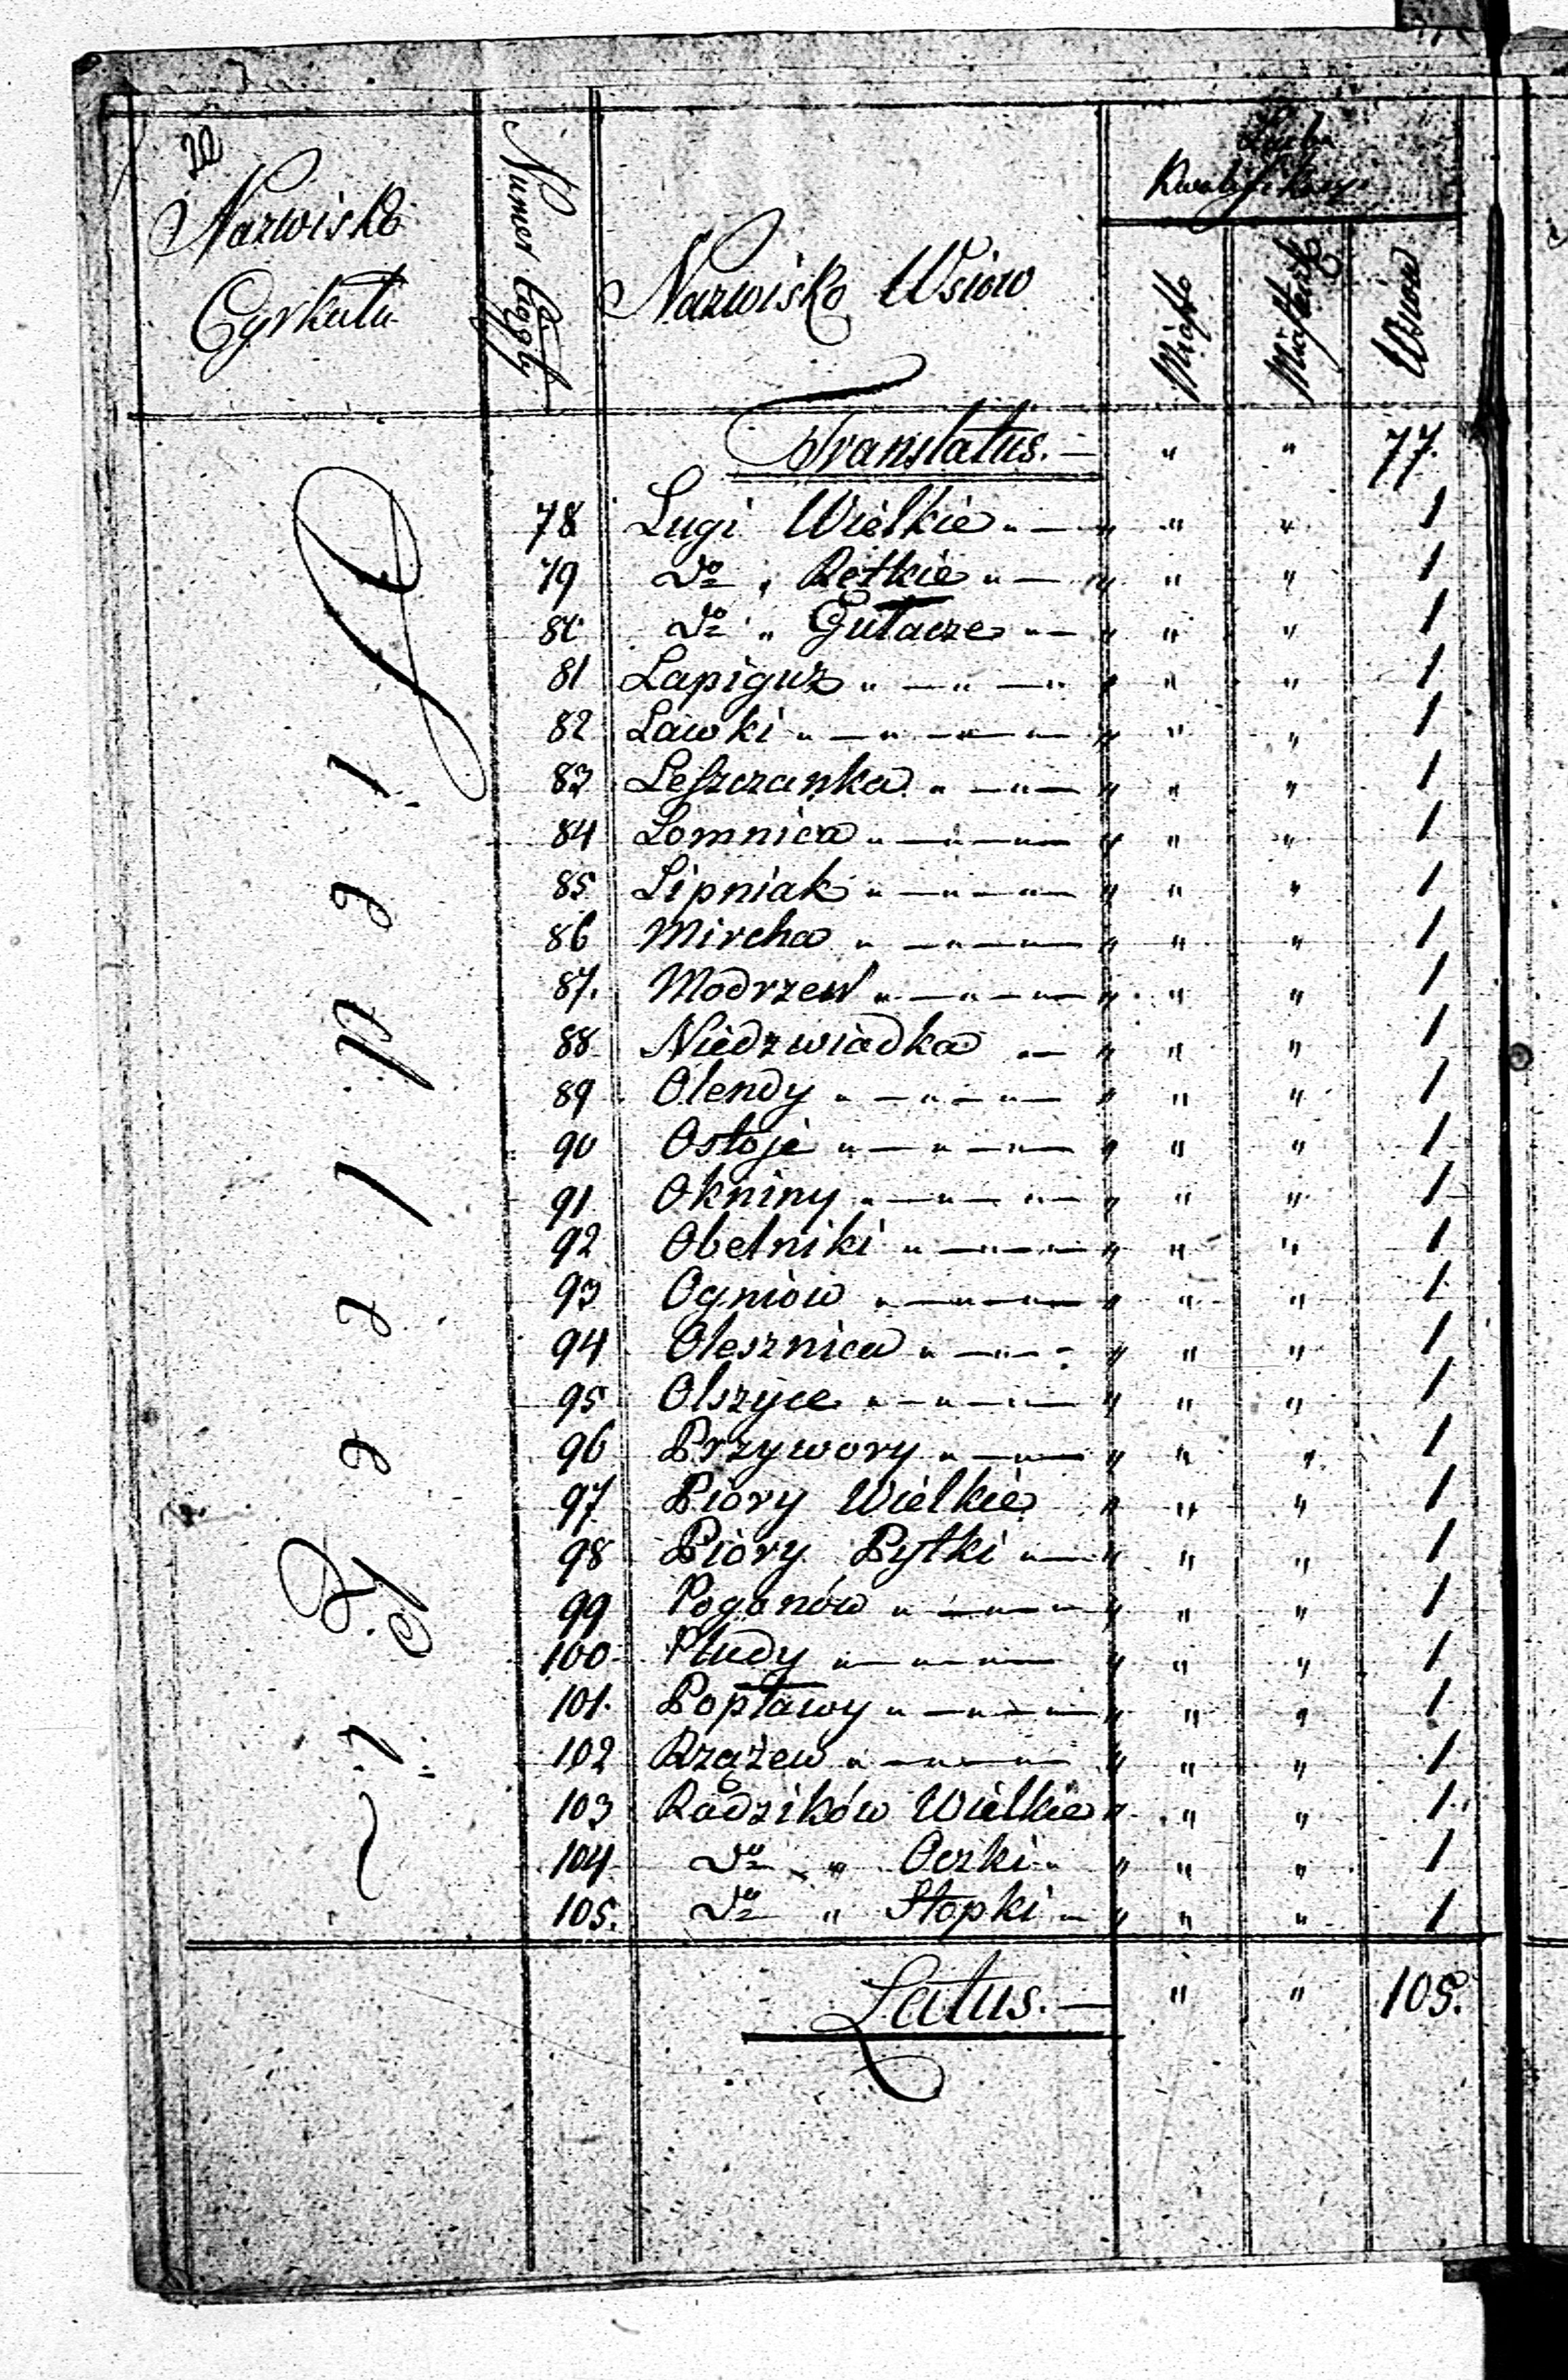 20
Nazwisko Cyrkułu
Numer Ciągły
Nazwisko Wsiów
Liczba
Kwalifikacyi
Miast
Miasteczek
Wsiów
Translatus. — " " 77.
78 Lugi Wielkie " — " " " 1
79 do " Rętkie " — " " " 1
80 do " Gułacze " — " " " 1
81 Lapiguz " — " — " " " " 1
82 Lawki " — " — " — " " " 1
83 Leszczanka " — " — " " " 1
84 Lomnica " — " — " — " " " 1
85 Lipniak " — " — " — " " " 1
86 Mircha " — " — " — " " " 1
87. Modrzew " — " — " — " " " 1
88 Niedzwiadka " — " " " 1
89 Olendy " — " — " — " " " 1
90 Ostoje " — " — " — " " " 1
91 Okniny " — " — " — " " " 1
92 Obelniki " — " — " — " " " 1
93 Ogniów " — " — " — " " " 1
94 Olesznica " — " — " " " 1
95 Olszyce " — " — " — " " " 1
96 Przywory " — " — " " " 1
97 Pióry Wielkie " " " 1
98 Pióry Pytki " — " " " 1
99 Poganów " — " — " — " " " 1
100 Pludy " — " — " — " " " 1
101. Popławy " — " — " — " " " 1
102 Rzążew " — " — " — " " " 1
103 Radzików Wielkie " " " 1
104 do " Oczki " " " " 1
105. do " Stopki " " " " 1
Latus. — " " 105.